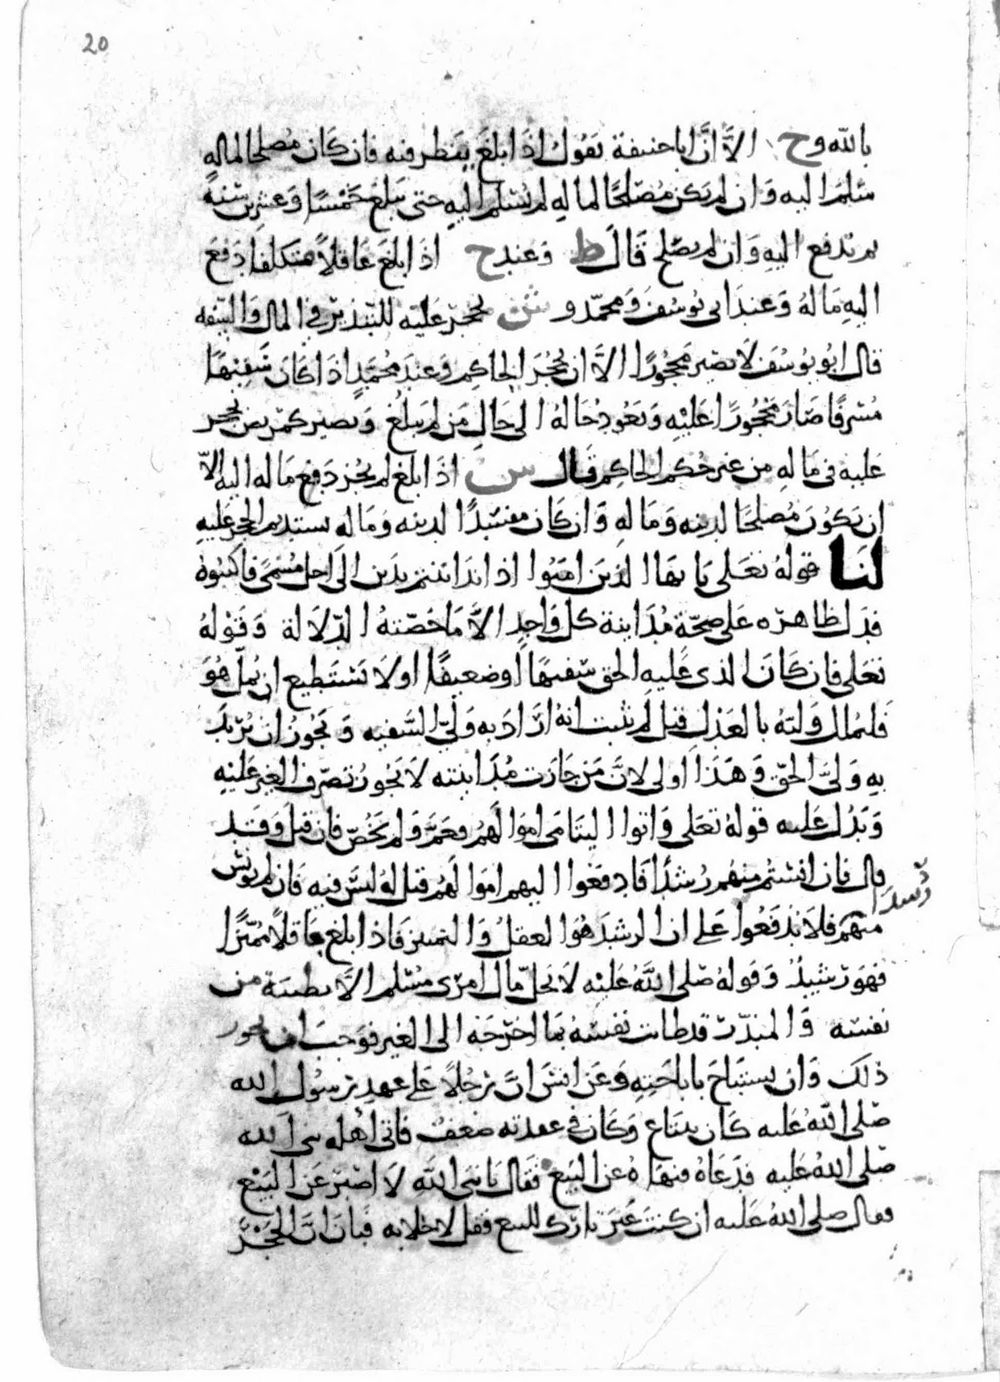 20
بالله وح الا ان ابا حنيفة يقول اذا بلغ ينظر فيه فان كان مصلحا لماله
سلم اليه وان لم يكن مصلحا لماله لم يسلم اليه حتى يبلغ خمسا وعشرين سنة
ثم يدفع اليه وان لم يصلح قال ط وعند ح اذا بلغ عاقلا متكلفا دفع
اليه ماله وعند ابي يوسف ومحمد و ش يحجر عليه للتبذير في المال والسفه
قال ابو يوسف لا يصير محجورا الا ان يحجر الحاكم وعند محمد اذا كان سفيها
مسرفا صار محجورا عليه وتعود حاله الى حال من لم يبلغ ويصير كمن يحجر
عليه في ماله من غير حكم الحاكم قال ش اذا بلغ لم يجز دفع ماله اليه الا
ان يكون مصلحا لدينه وماله وان كان مفسدا لدينه وماله يستديم الحجر عليه
لنا قوله تعلى يا يها الذين امنوا اذا تداينتم بدين الى اجل مسمى فاكتبوه
فدل ظاهره على صحة مداينة كل واحد الا ما خصته الدلالة وقوله
تعلى فان كان الذى عليه الحق سفيها او ضعيفا او لا يستطيع ان يمل هو
فليملل وليه بالعدل قيل لم يثبت انه اراد به ولي السفيه ويجوز ان يريد
به ولي الحق وهذا اولى لان من جازت مداينته لا يجوز تصرف الغير عليه
ويدل عليه قوله تعلى واتوا اليتامى اموالهم فعم ولم يخص فان قيل وقد
قال فان انستم منهم رشدا فادفعوا اليهم اموالهم قيل له ليس فيه فان لم يونس
رشدا
منهم فلا تدفعوا على ان الرشد هو العقل والتمييز فاذا بلغ عاقلا مميزا
فهو رشيد وقوله صلى الله عليه لا يحل مال امرئ مسلم الا بطيبة من
نفسه والمبذر قد طابت نفسه بما اخرجه الى الغير فوجب ان يجوز
ذلك وان يستباح باباحته وعن انس ان رجلا على عهد رسول الله
صلى الله عليه كان يبتاع وكان في عقدته ضعف فاتى اهله نبي الله
صلى الله عليه فدعاه فنهاه عن البيع فقال يا نبي الله لا اصبر عن البيع
فقال صلى الله عليه ان كنت غير تارك للبيع فقل لا خلابه فبان ان الحجر